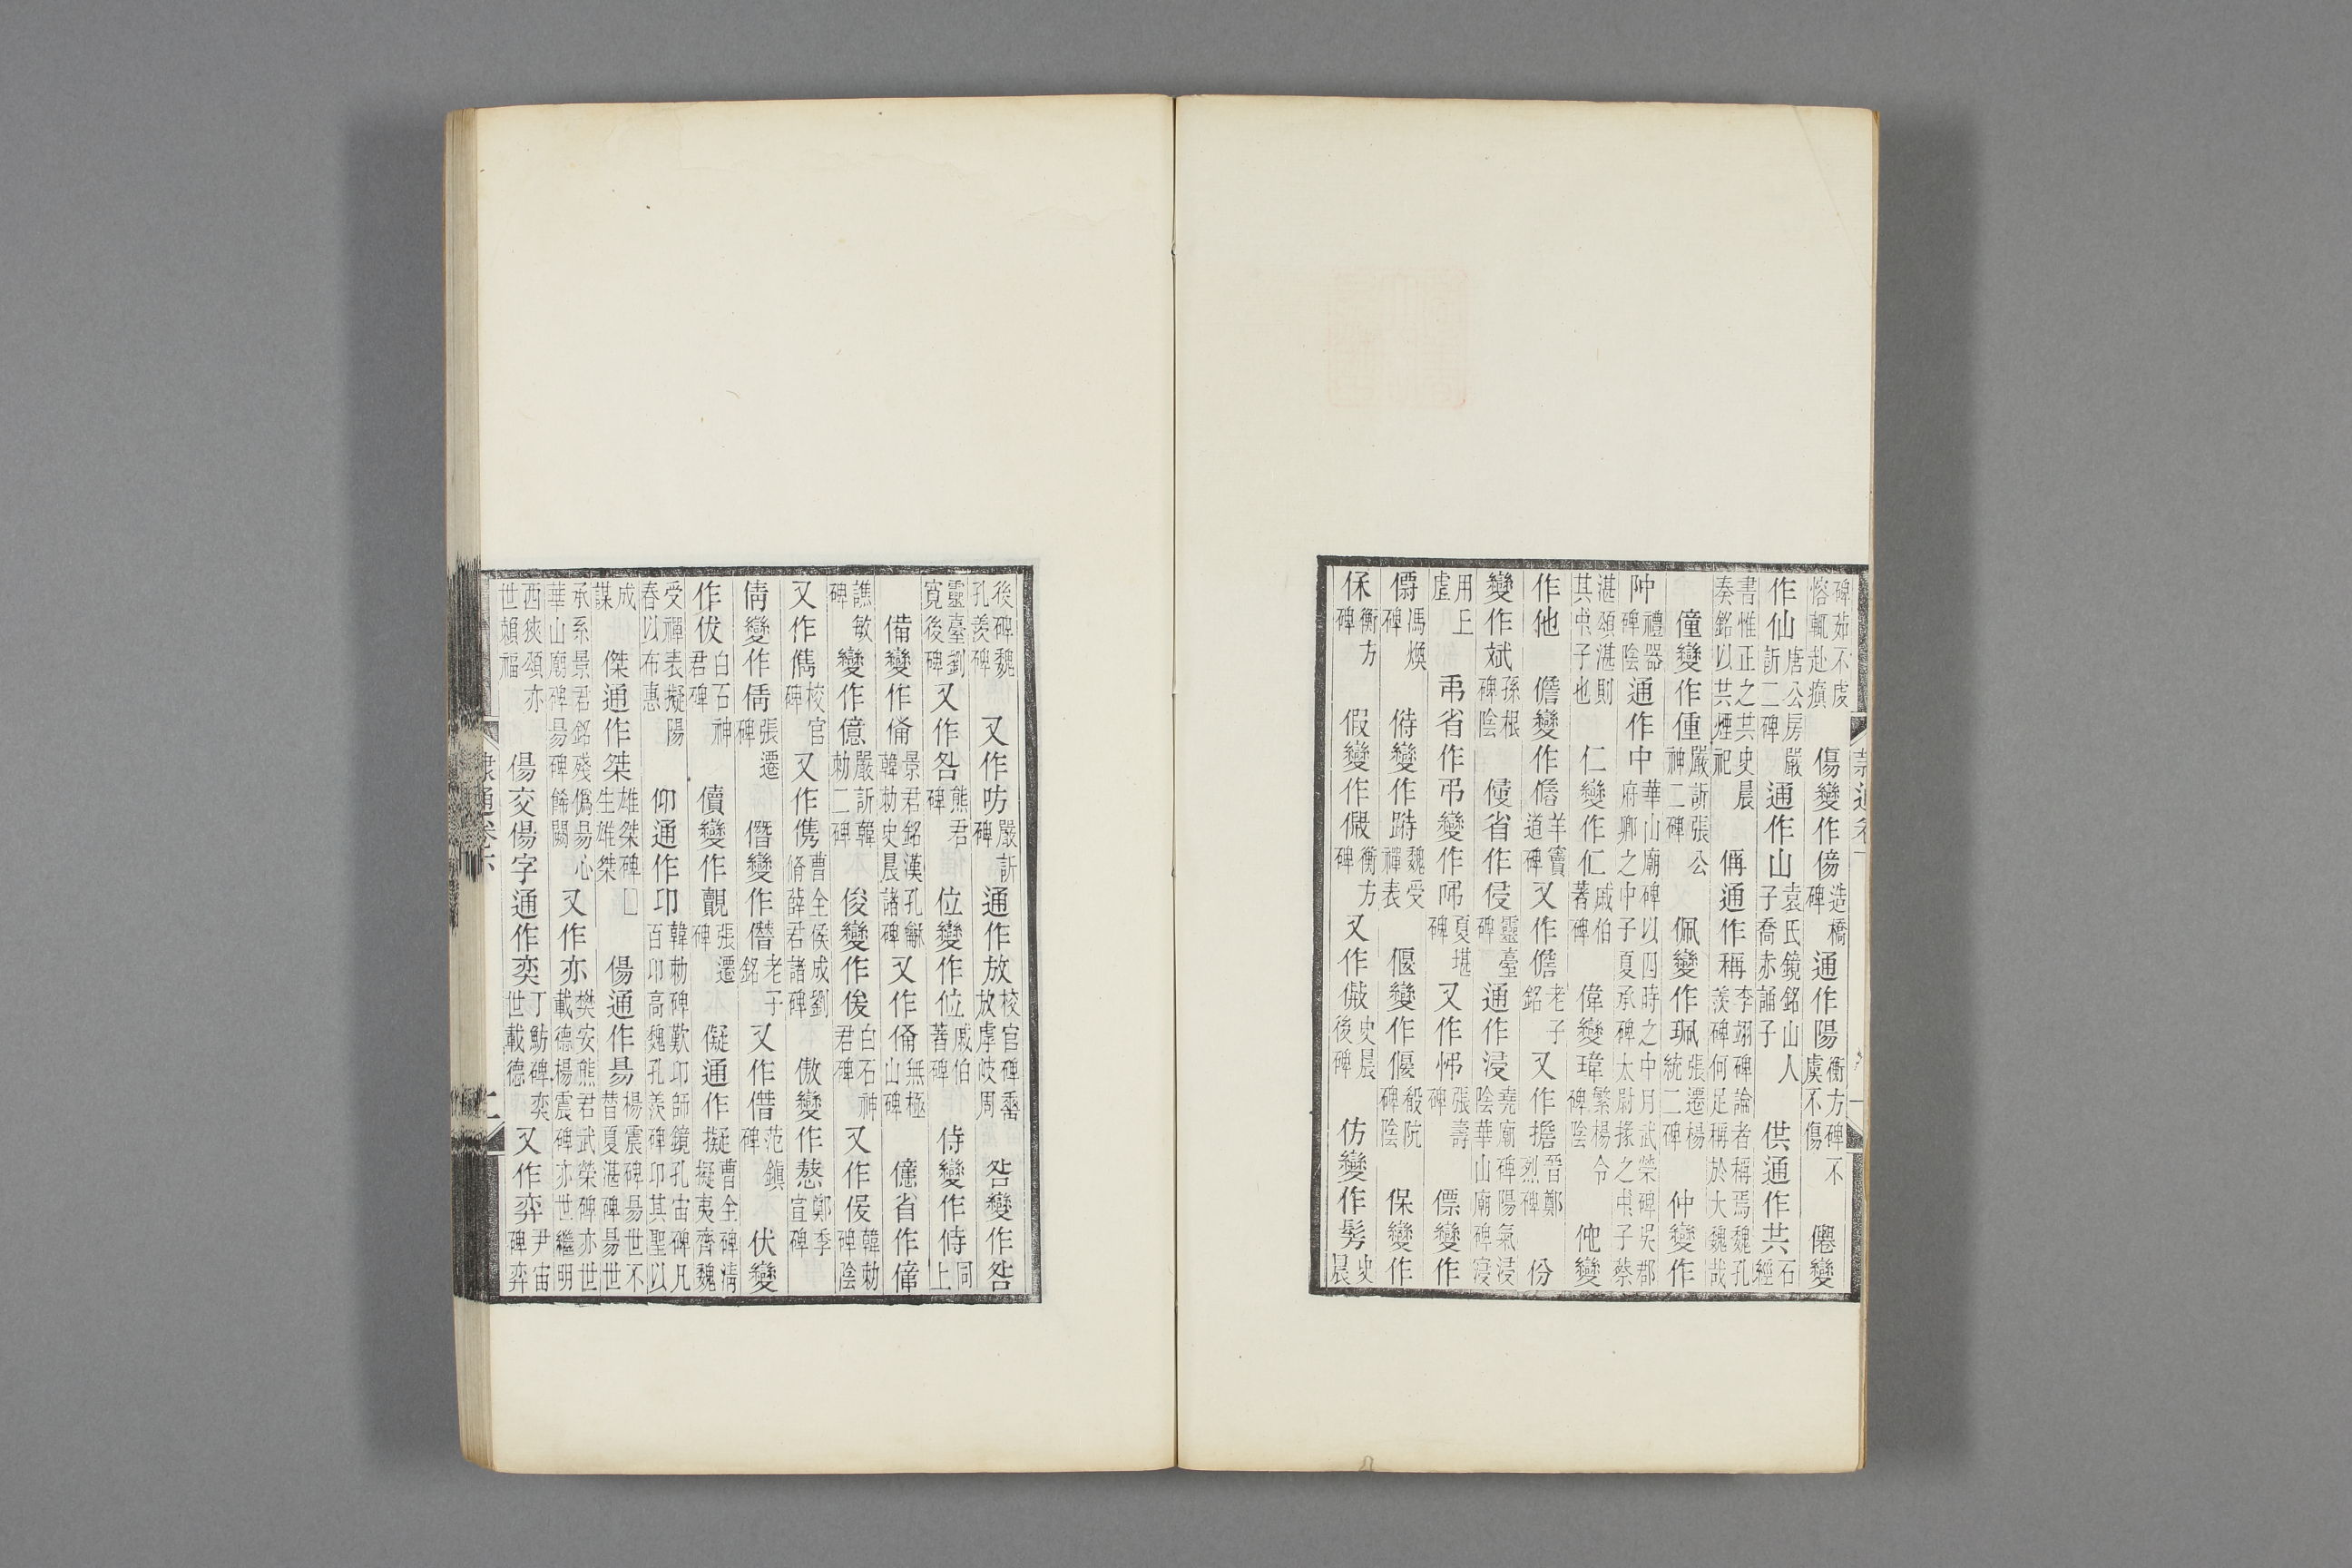 碑茹不虔愹輒赴瘨 傷變作傷造橋碑 通作陽衡方碑不虞不傷 僊變
作仙唐公房嚴訢二碑 通作山袁氏鏡銘山人子喬赤誦子 供通作共石經
書惟正之共史晨奏銘以共煙祀 偁通作稱李翊碑論者稱焉魏孔羨碑何足稱於大魏哉
僮變作偅嚴訢張公神二碑 佩變作珮張遷楊統二碑 仲變作
狆禮器碑陰 通作中華山廟碑以四時之中月武榮碑吳郡府卿之中子夏承碑太尉掾之中子蔡
湛頌湛則其中子也 仁變作仁戚伯著碑 偉變瑋繁楊令碑陰 佗變
作他 儋變作儋羊竇道碑 又作儋老子銘 又作擔晉鄭烈碑 份
變作斌孫根碑陰 侵省作侵靈臺碑 通作浸堯廟碑陽氣浸陰華山廟碑寖
用上虐 弔省作弔變作𢎨夏堪碑 又作㤆張壽碑 僄變作
僄馮煥碑 偫變作跱魏受禪表 偃變作偃殽阬碑陰 保變作
保衡方碑 假變作假衡方碑 又作假史晨後碑 仿變作髣史晨
後碑魏孔羨碑 又作昉嚴訢碑 通作放校官碑垂放虖岐周 咎變作咎
靈臺劉寬後碑 又作咎熊君碑 位變作位戚伯著碑 侍變作侍同上
備變作備景君銘漢孔龢韓勑史晨諸碑 又作俻無極山碑 億省作億
譙敏碑 變作億嚴訢韓勑二碑 俊變作俊白石神君碑 又作俊韓勑碑陰
又作儁校官碑 又作儁曹全侯成劉脩薛君諸碑 傲變作憗鄭季宣碑
倩變作倩張遷碑 僭變作僭老子銘 又作僣范鎮碑 伏變
作伏白石神君碑 儥變作覿張遷碑 儗通作擬曹全碑清擬夷齊魏
受禪表擬陽春以布惠 仰通作卬韓勑碑歎卬師鏡孔宙碑凡百卬高魏孔羨碑卬其聖以
成謀 傑通作桀雄桀碑□生雄桀 傷通作昜楊震碑昜世不替夏湛碑昜世
承系景君銘殘僞昜心華山廟碑昜碑飾闕 又作亦樊安熊君武榮碑亦世載德楊震碑亦世繼明
西狹頌亦世賴福 傷交傷字通作奕丁魴碑奕世載德 又作弈尹宙碑弈
隸通卷下 二